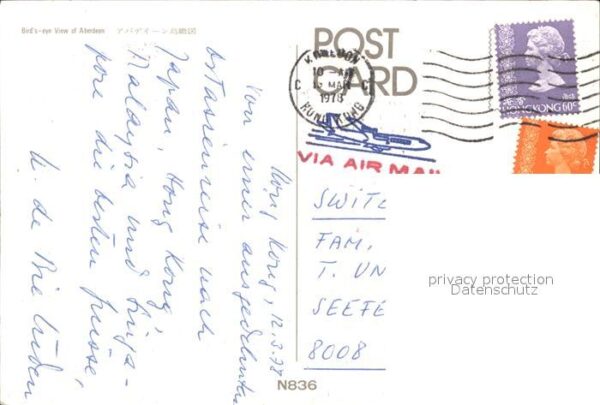 Bird's-eye View of Aberdeen アバディーン鳥瞰図
POST
CARD
KOWLOON
10 AM
MAR
1978
HONG KONG
C C
HONG KONG 60c
VIA AIR MAIL
Hong Kong, 12.3.78
Von einer ausgedehnten
Ostasienreise nach
Japan, Hong Kong,
Malaysia und Singa-
pore die besten Grüsse,
SWITZ
FAM.
T. UN
SEEFE
8008
privacy protection
Datenschutz
N836